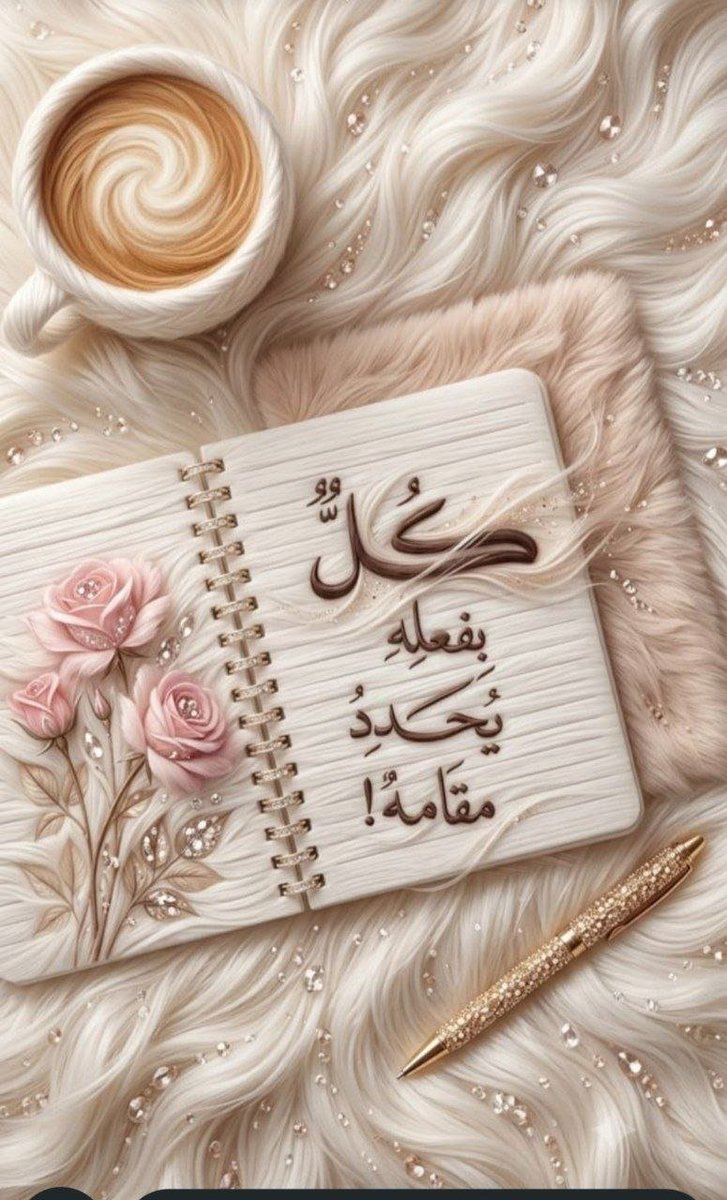 كُلٌّ
بِفعلِهِ
يُحَددُ
مقَامهُ!